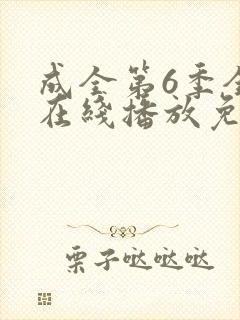 成全第6季全
在綫播放免
栗子哒哒哒